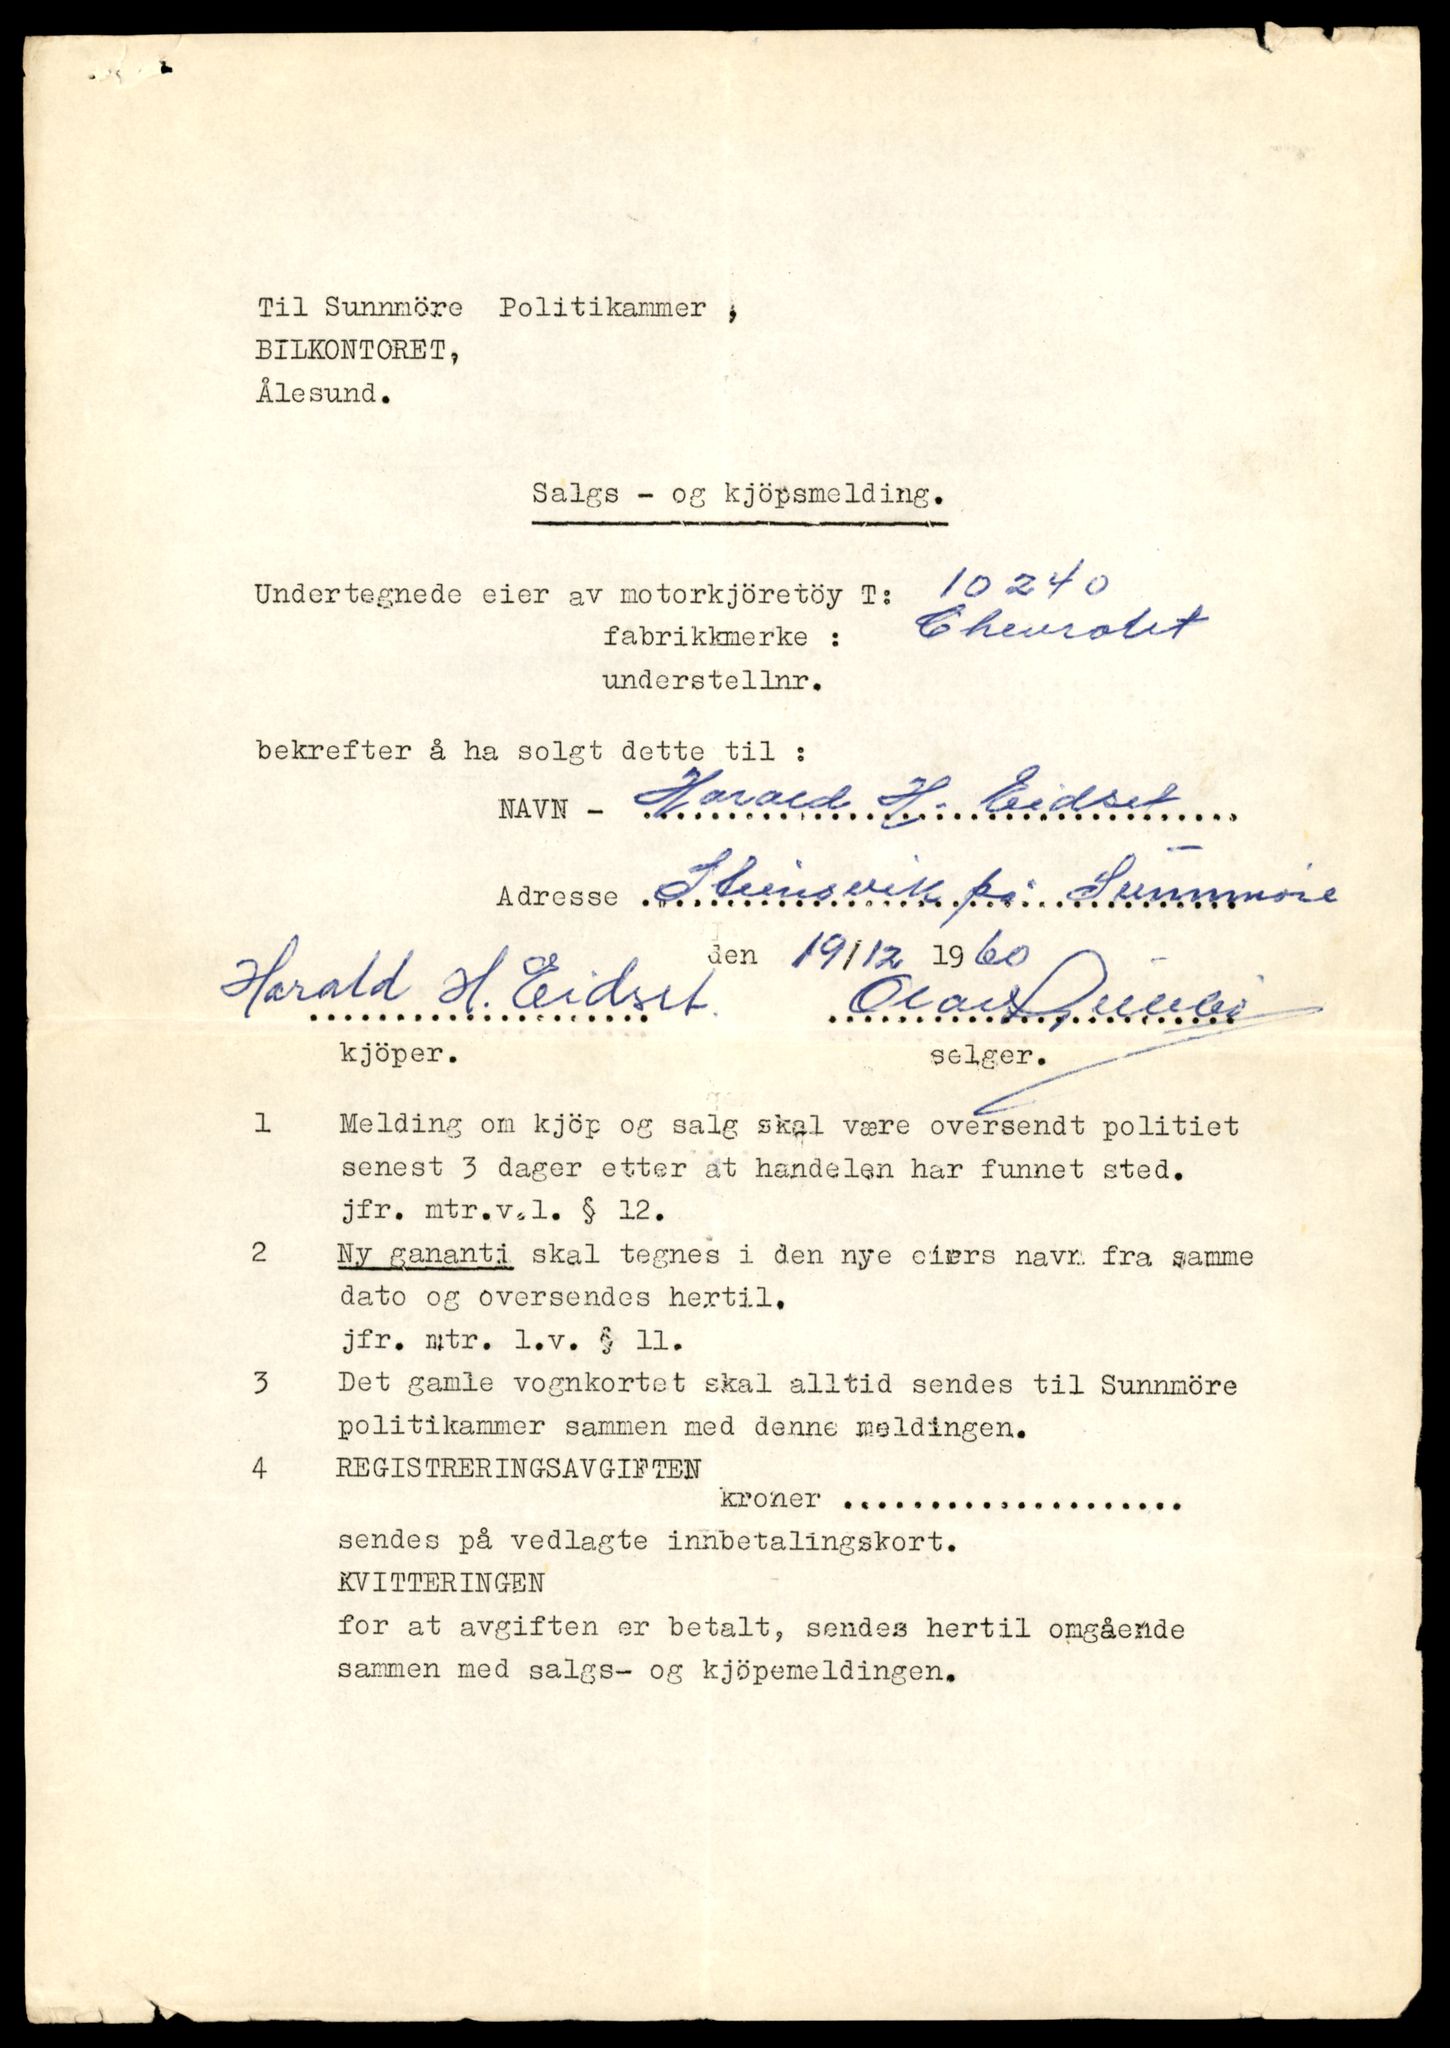 Til Sunnmöre Politikammer ,
BILKONTORET,
Ålesund.
Salgs - og kjöpsmelding.
Undertegnede eier av motorkjöretöy T: 10240
fabrikkmerke : Chevrolet
understellnr.
bekrefter å ha solgt dette til :
NAVN - Harald H. Eidset
Adresse Steinsvik på Sunnmöre
den 19/12 1960
Harald H. Eidset Olav
kjöper. selger.
1 Melding om kjöp og salg skal være oversendt politiet
senest 3 dager etter at handelen har funnet sted.
jfr. mtr.v.l. § 12.
2 Ny gananti skal tegnes i den nye eiers navn fra samme
dato og oversendes hertil.
jfr. mtr. l.v. § 11.
3 Det gamle vognkortet skal alltid sendes til Sunnmöre
politikammer sammen med denne meldingen.
4 REGISTRERINGSAVGIFTEN
kroner ....................
sendes på vedlagte innbetalingskort.
KVITTERINGEN
for at avgiften er betalt, sendes hertil omgående
sammen med salgs- og kjöpemeldingen.